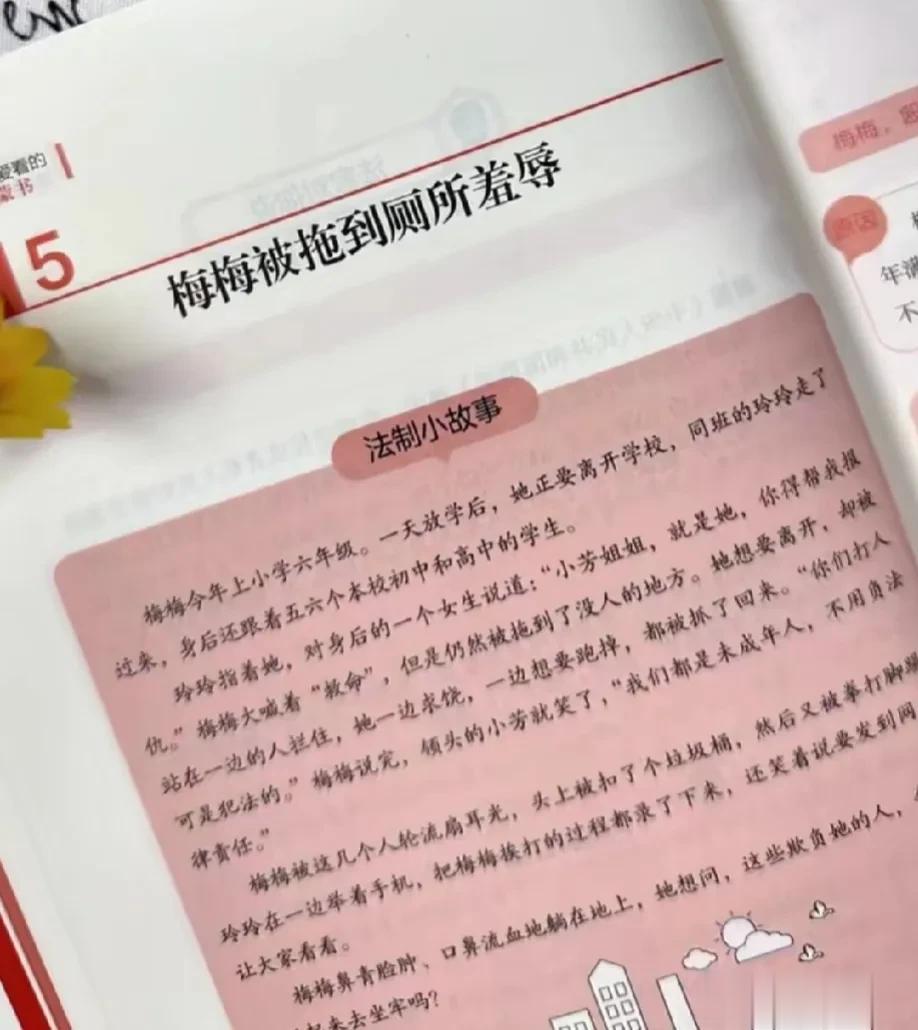 爱看的
蒙书
5
梅梅被拖到厕所羞辱
法制小故事
梅梅今年上小学六年级。一天放学后，她正要离开学校，同班的玲玲走了
过来，身后还跟着五六个本校初中和高中的学生。
玲玲指着她，对身后的一个女生说道：“小芳姐姐，就是她，你得帮我报
仇。”梅梅大喊着“救命”，但是仍然被拖到了没人的地方。她想要离开，却被
站在一边的人拦住，她一边求饶，一边想要跑掉，都被抓了回来。“你们打人
可是犯法的。”梅梅说完，领头的小芳就笑了，“我们都是未成年人，不用负法
律责任。”
梅梅被这几个人轮流扇耳光，头上被扣了个垃圾桶，然后又被拳打脚踢
玲玲在一边举着手机，把梅梅挨打的过程都录了下来，还笑着说要发到网
让大家看看。
梅梅鼻青脸肿、口鼻流血地躺在地上，她想问，这些欺负她的人，
起来去坐牢吗？
梅梅，
原因
年满
不